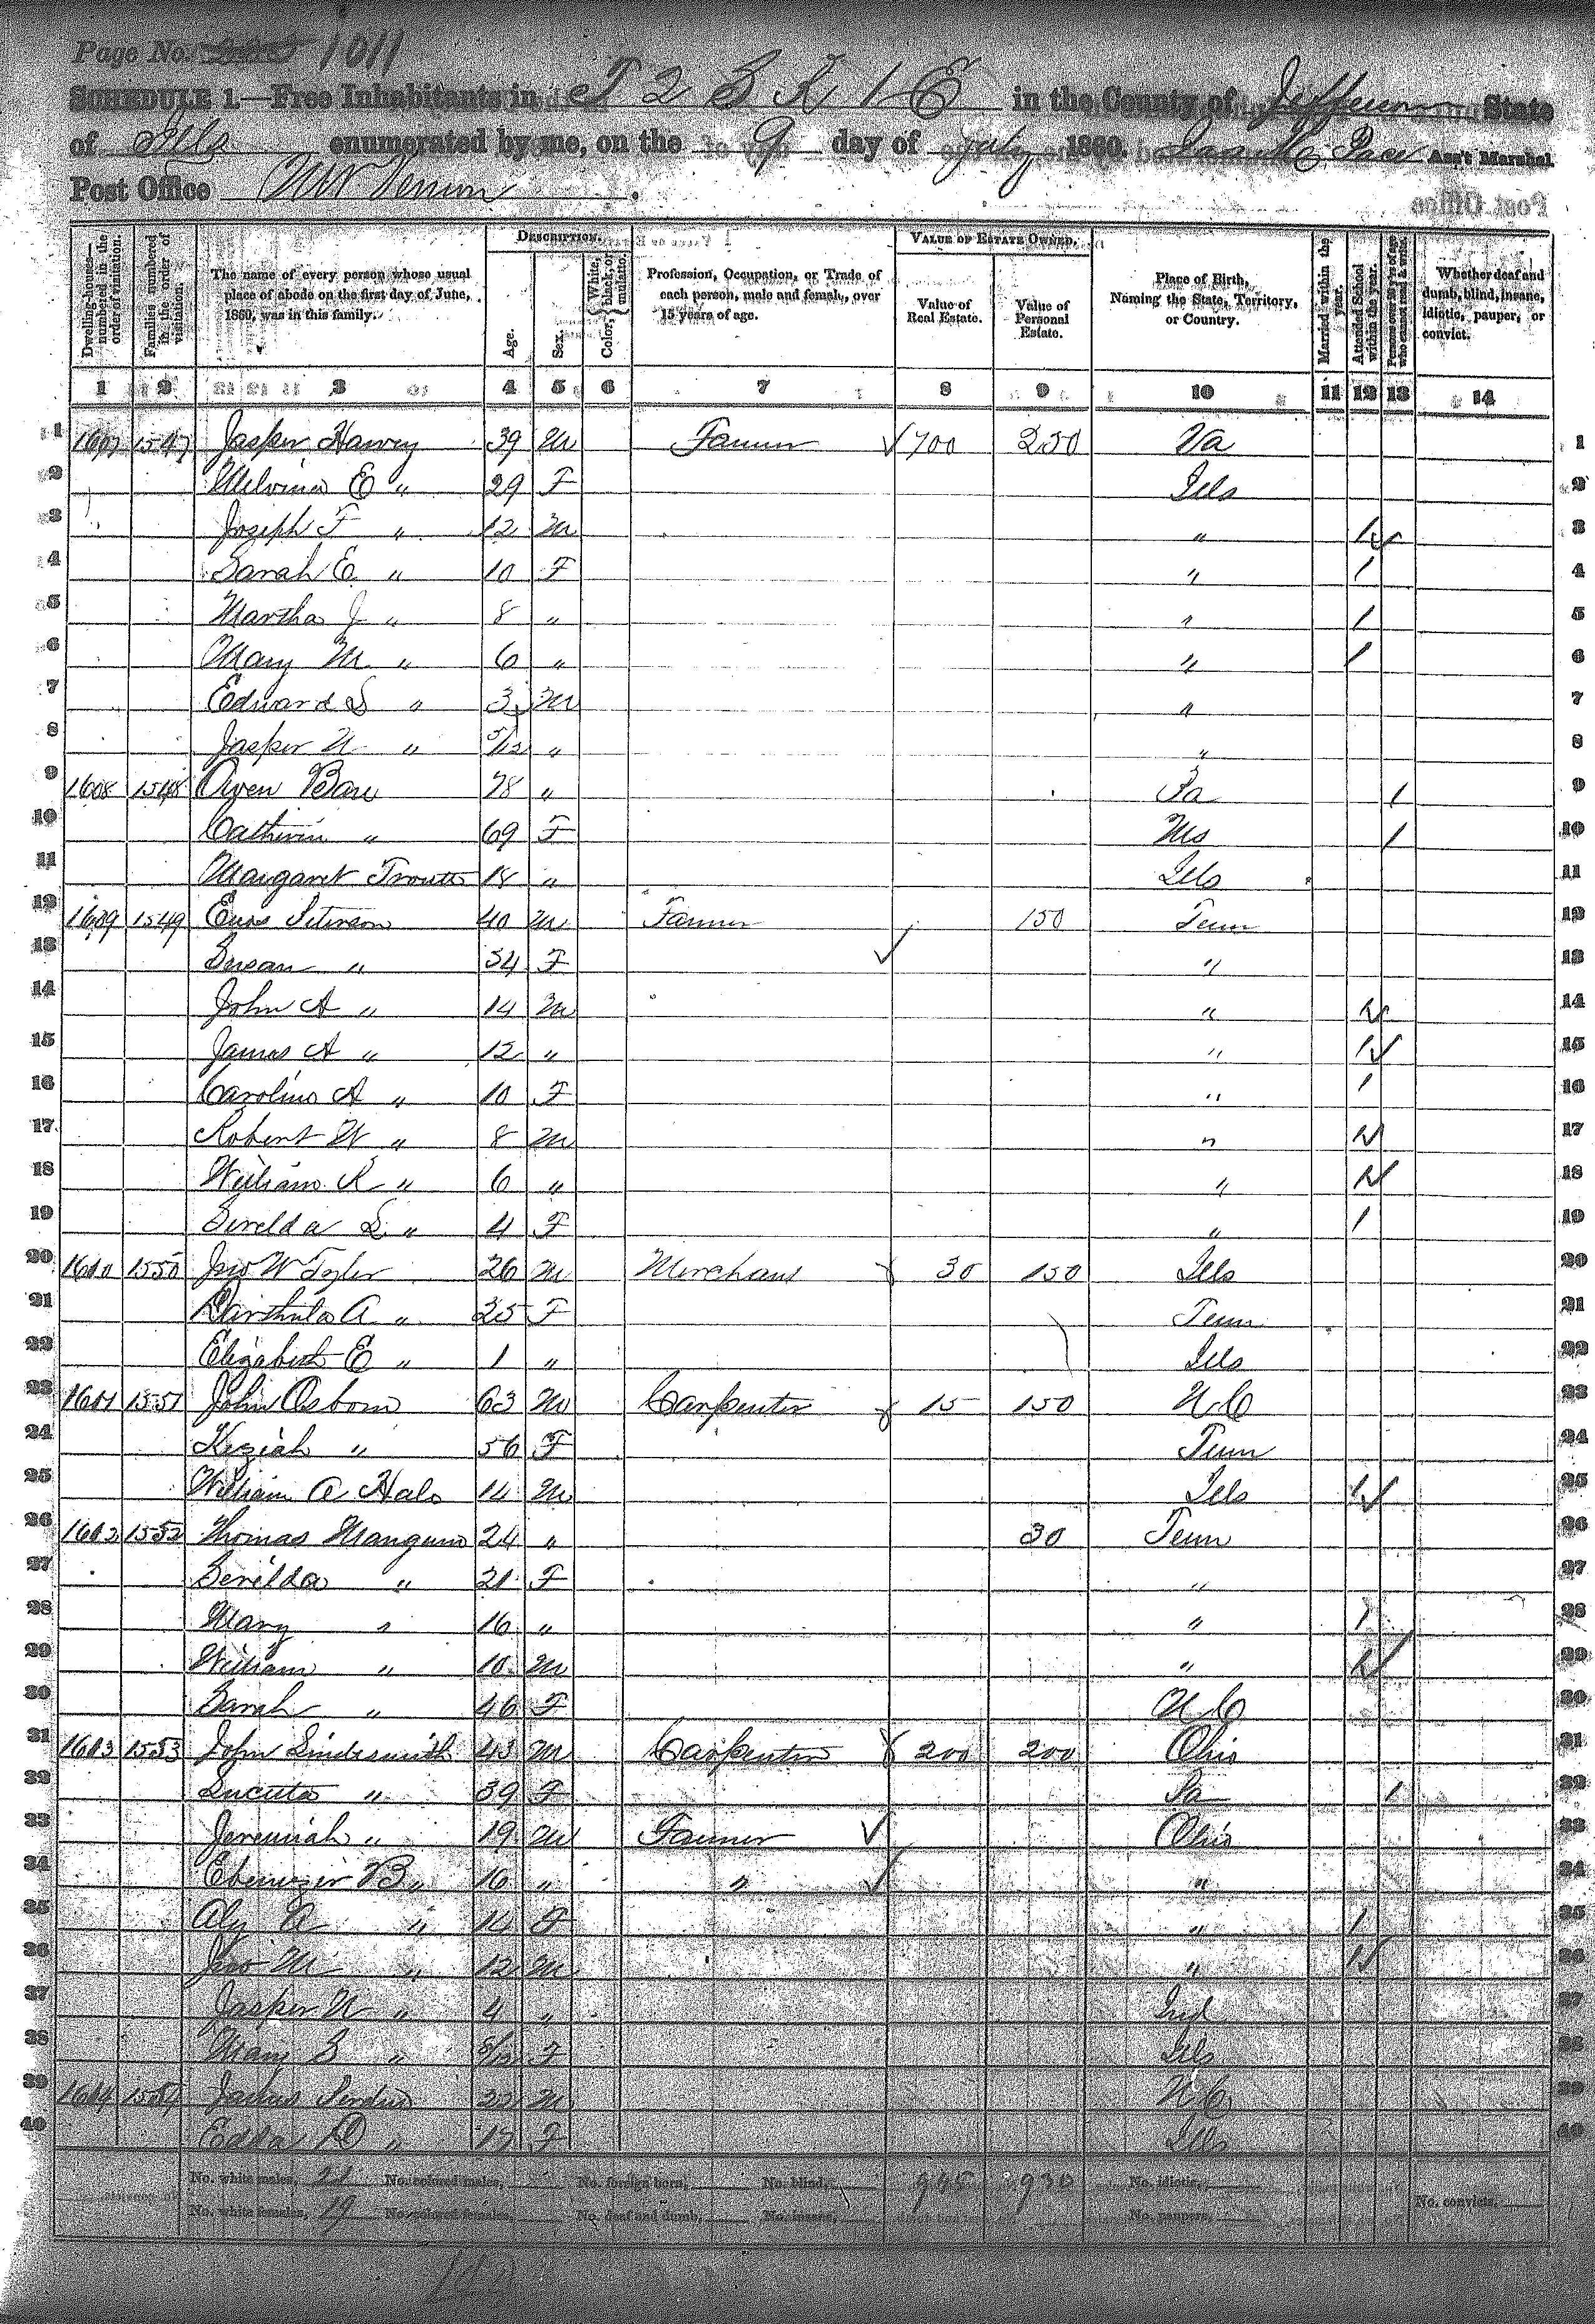 Page No. 1011
SCHEDULE 1.—Free Inhabitants in T 2 S R 1 E in the County of Jefferson State
of Ills enumerated by me, on the 9 day of July 1860. Pace Ass't Marshal
Post Office Mt Vernon.
Dwelling-houses—numbered in the order of visitation.
Families numbered in the order of visitation.
The name of every person whose usual place of abode on the first day of June, 1860, was in this family.
DESCRIPTION.
Age.
Sex.
Color, {White, black, or mulatto.
Profession, Occupation, or Trade of each person, male and female, over 15 years of age.
VALUE OF ESTATE OWNED.
Value of Real Estate.
Value of Personal Estate.
Place of Birth, Naming the State, Territory, or Country.
Married within the year.
Attended School within the year.
Persons over 20 y'rs of age who cannot read & write.
Whether deaf and dumb, blind, insane, idiotic, pauper, or convict.
1 2 3 4 5 6 7 8 9 10 11 12 13 14
1 1607 1547 Jasper Harvey 39 M Farmer 700 250 Va 1
2 Melvina E " 29 F Ills 2
3 Joseph F " 12 M " 1 3
4 Sarah E " 10 F " 1 4
5 Martha J " 8 " " 1 5
6 Mary M " 6 " " 1 6
7 Edward S " 3 M " 7
8 Jasper N " 5/12 " " 8
9 1608 1548 Owen 78 " Pa 1 9
10 Catherin " 69 F 1 10
11 Margaret Troutt 18 " Ills 11
12 1609 1549 Enos Peterson 40 M Farmer 150 Tenn 12
13 Susan " 34 F " 13
14 John A " 14 M " 1 14
15 James A " 12 " " 1 15
16 Caroline A " 10 F " 1 16
17 Robert W " 8 M " 1 17
18 William R " 6 " " 1 18
19 L " 4 F " 1 19
20 1610 1550 Jno W Tyler 26 M Merchant 30 150 Ills 20
21 A " 25 F Tenn 21
22 Elizabeth E " 1 " Ills 22
23 1611 1551 John Osborn 63 M Carpenter 15 150 N C 23
24 Keziah " 56 F Tenn 24
25 William A Hale 14 M Ills 1 25
26 1612 1552 Thomas Mangum 24 " 30 Tenn 26
27 Serilda " 21 F " 27
28 Mary " 16 " " 1 28
29 William " 10 M " 1 29
30 Sarah " 46 F N C 30
31 1613 1553 John Lindesmith 43 M Carpenter 200 200 Ohio 31
32 " 39 F Pa 1 32
33 Jeremiah " 19 M Farmer Ohio 33
34 Ebenezer B " 16 " " " 34
35 A " 14 F " 1 35
36 Jno M " 12 M " 1 36
37 Jasper N " 4 " Ind 37
38 Mary S " F Ills 38
39 1614 1554 22 M N C 39
40 D " 17 F Ills 40
No. white males, 21 No. colored males, No. foreign born, No. blind, 945 930 No. idiotic,
No. white females, 19 No. colored females, No. deaf and dumb, No. insane, No. paupers, No. convicts,